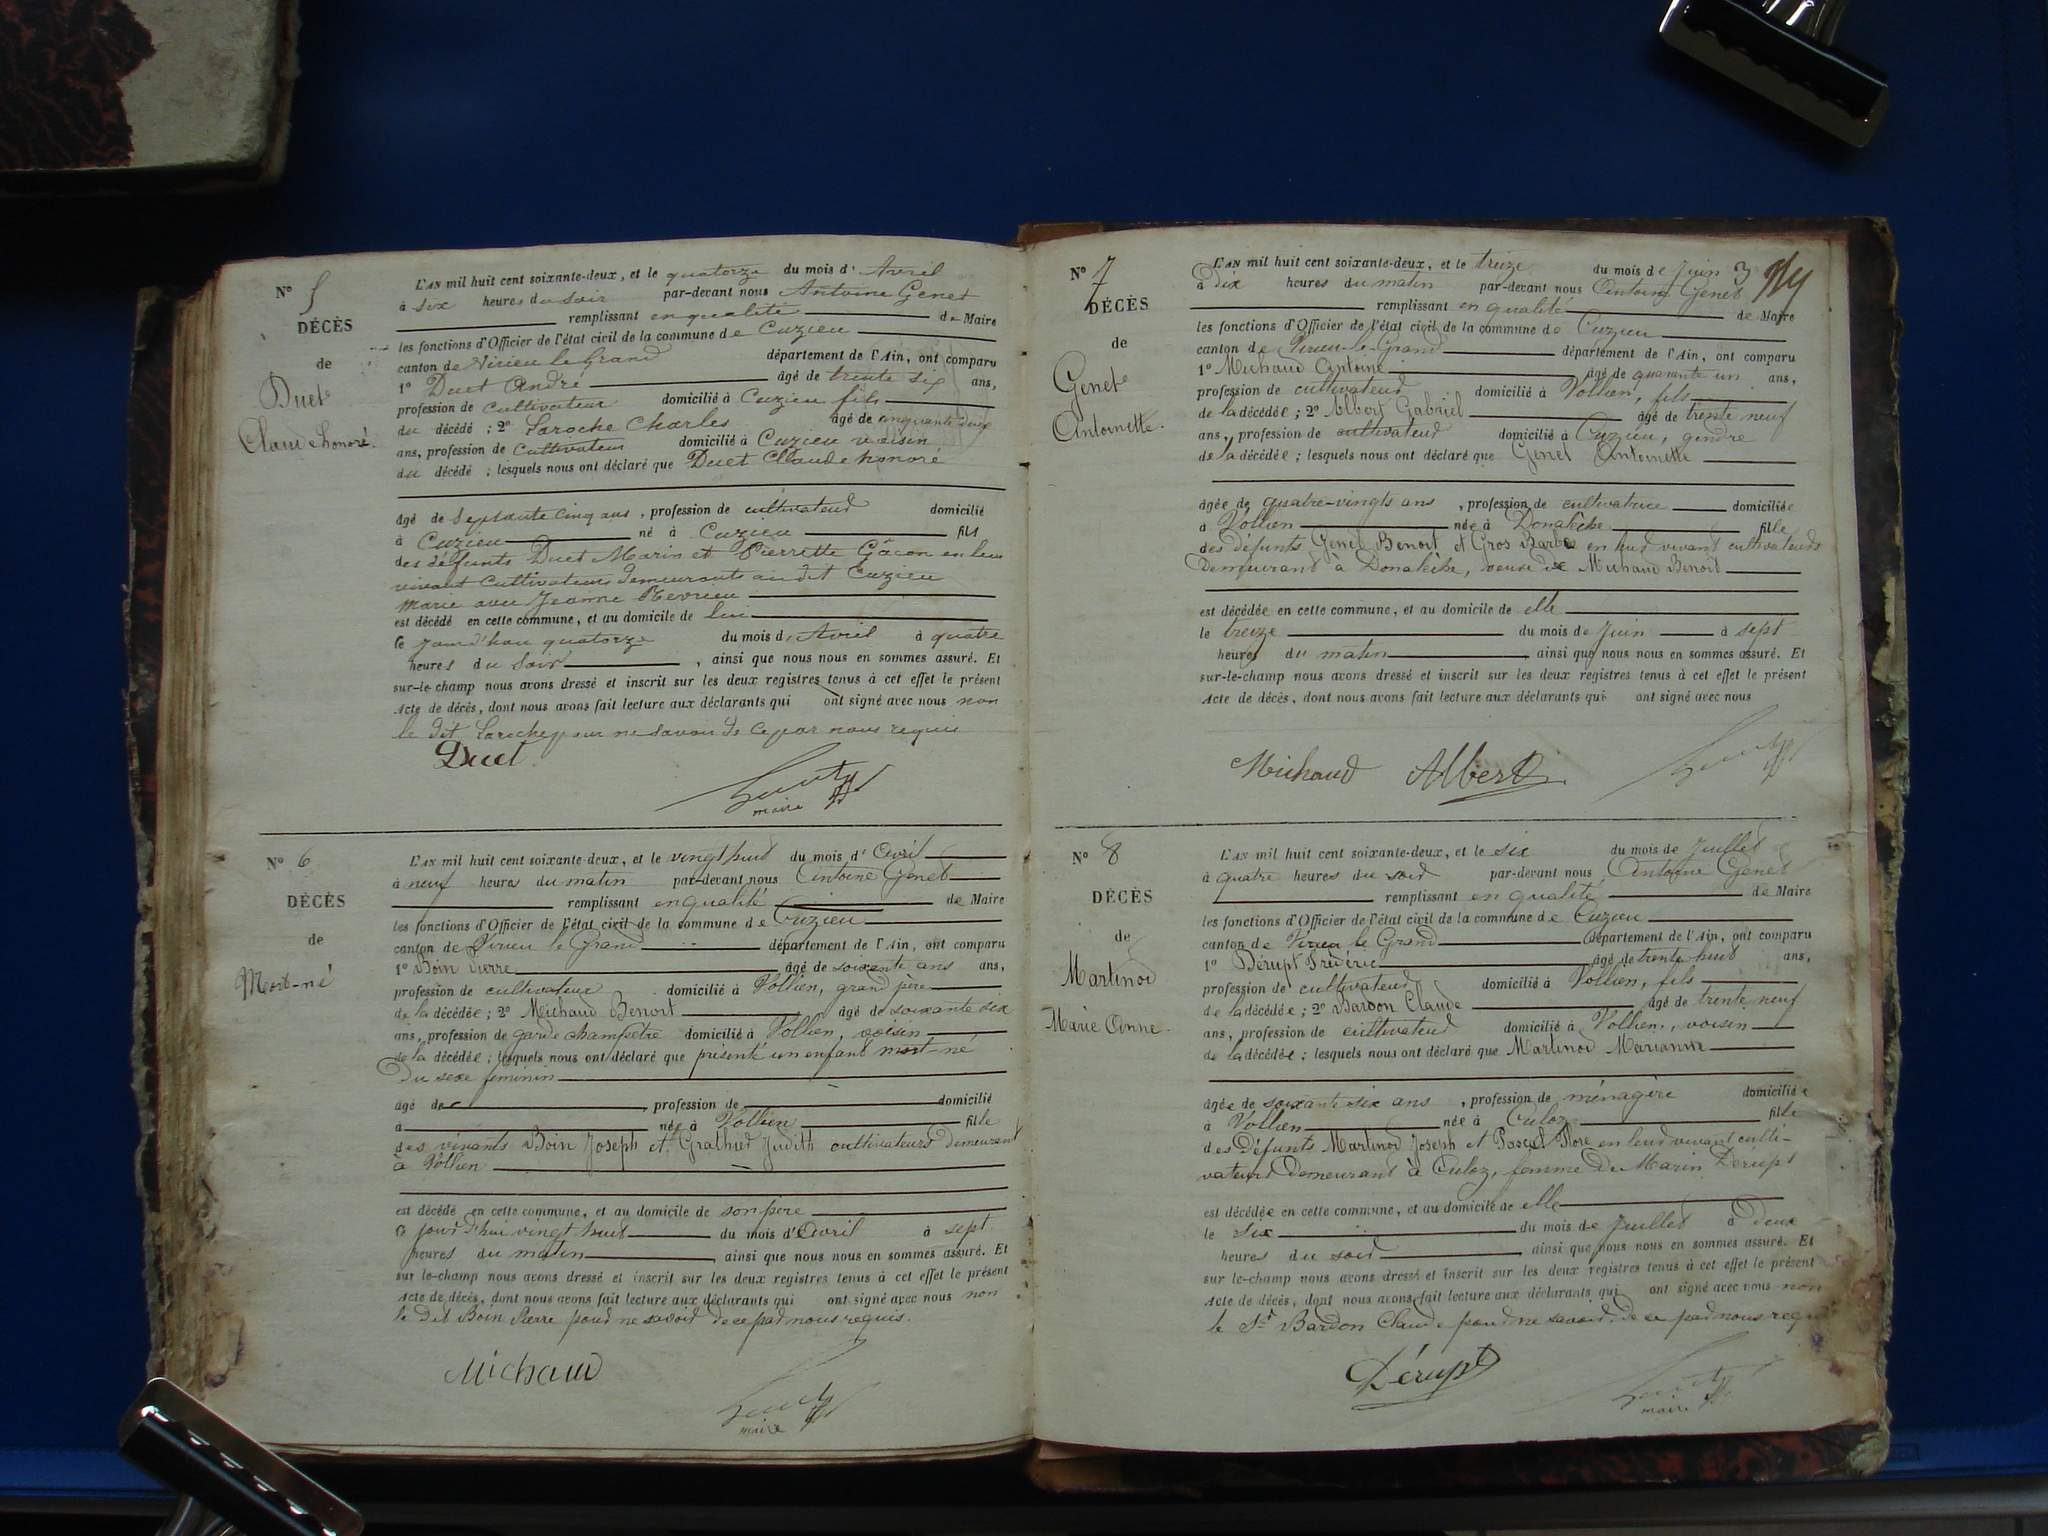 N° 5
DÉCÈS
de
Duet
Claude honoré.
L'AN mil huit cent soixante-deux, et le quatorze du mois d' Avril
à six heures du soir par-devant nous Antoine Genet
remplissant en qualité de Maire
les fonctions d'Officier de l'état civil de la commune de Cuzieu
canton de Virieu le Grand département de l'Ain, ont comparu
1° Duet André âgé de trente six ans,
profession de cultivateur domicilié à Cuzieu fils
du décédé ; 2° Laroche Charles âgé de cinquante deux
ans, profession de Cultivateur domicilié à Cuzieu voisin
du décédé ; lesquels nous ont déclaré que Duet Claude honoré
âgé de Septante cinq ans, profession de cultivateur domicilié
à Cuzieu né à Cuzieu fils
des défunts Duet Marin et Pierrette Gâcon en leur
vivant Cultivateurs demeurants au dit Cuzieu
marié avec Jeanne Revrieu
est décédé en cette commune, et au domicile de lui
ce jourd'hui quatorze du mois d' Avril à quatre
heures du Soir , ainsi que nous nous en sommes assuré. Et
sur-le-champ nous avons dressé et inscrit sur les deux registres tenus à cet effet le présent
Acte de décès, dont nous avons fait lecture aux déclarants qui ont signé avec nous non
le dit Laroche pour ne savoir de ce par nous requis
Duet
maire
N° 6
DÉCÈS
de
Mort-né
L'AN mil huit cent soixante-deux, et le vingt huit du mois d' Avril
à neuf heures du matin par-devant nous Antoine Genet
remplissant en qualité de Maire
les fonctions d'Officier de l'état civil de la commune de Cuzieu
canton de Virieu le Grand département de l'Ain, ont comparu
1° Boin Pierre âgé de soixante ans ans,
profession de cultivateur domicilié à Vollien, grand père
de la décédée ; 2° Michaud Benoit âgé de soixante six
ans, profession de garde champêtre domicilié à Vollien, voisin
de la décédée ; lesquels nous ont déclaré que présenté un enfant mort-né
Du sexe féminin
âgé de profession de domicilié
à née à Vollien fille
des vivants Boin Joseph et Judith cultivateurs demeurant
à Vollien
est décédé en cette commune, et au domicile de son père
ce jourd'hui vingt huit du mois d' Avril à sept
heures du matin ainsi que nous nous en sommes assuré. Et
sur le-champ nous avons dressé et inscrit sur les deux registres tenus à cet effet le présent
Acte de décès, dont nous avons fait lecture aux déclarants qui ont signé avec nous non
le dit Boin Pierre pour ne savoir de ce par nous requis.
Michaud
maire
3
N° 7
DÉCÈS
de
Genet
Antoinette.
L'AN mil huit cent soixante-deux, et le treize du mois de Juin
à dix heures du matin par-devant nous Antoine Genet
remplissant en qualité de Maire
les fonctions d'Officier de l'état civil de la commune de Cuzieu
canton de Virieu-le-Grand département de l'Ain, ont comparu
1° Michaud Antoine âgé de quarante un ans,
profession de cultivateur domicilié à Vollien, fils
de la décédée ; 2° Albert Gabriel âgé de trente neuf
ans, profession de cultivateur domicilié à Cuzieu, gendre
de la décédée ; lesquels nous ont déclaré que Genet Antoinette
âgée de quatre-vingts ans , profession de cultivatrice domiciliée
à Vollien née à Donalèche fille
des défunts Genet Benoit et Gros Barbe en leur vivant cultivateurs
Demeurant à Donalèche, veuve de Michaud Benoit
est décédée en cette commune, et au domicile de elle
le treize du mois de Juin à sept
heures du matin ainsi que nous nous en sommes assuré. Et
sur-le-champ nous avons dressé et inscrit sur les deux registres tenus à cet effet le présent
Acte de décès, dont nous avons fait lecture aux déclarants qui ont signé avec nous
Michaud Albert
N° 8
DÉCÈS
de
Martinod
Marie Anne.
L'AN mil huit cent soixante-deux, et le six du mois de Juillet
à quatre heures du soir par-devant nous Antoine Genet
remplissant en qualité de Maire
les fonctions d'Officier de l'état civil de la commune de Cuzieu
canton de Virieu le Grand département de l'Ain, ont comparu
1° Dérupt Frédéric âgé de trente huit ans,
profession de cultivateur domicilié à Vollien, fils
de la décédée ; 2° Bardon Claude âgé de trente neuf
ans, profession de cultivateur domicilié à Vollien, voisin
de la décédée ; lesquels nous ont déclaré que Martinod Marianne
âgée de soixante six ans , profession de ménagère domiciliée
à Vollien née à Culoz fille
des Défunts Martinod Joseph et Pascal Flore en leur vivant culti-
vateurs Demeurant à Culoz, femme de Marin Dérupt
est décédée en cette commune, et au domicile de elle
le six du mois de Juillet à Deux
heures du soir ainsi que nous nous en sommes assuré. Et
sur le-champ nous avons dressé et inscrit sur les deux registres tenus à cet effet le présent
Acte de décès, dont nous avons fait lecture aux déclarants qui ont signé avec nous non
le Sr Bardon Claude pour ne savoir de ce par nous requis
Dérupt
maire